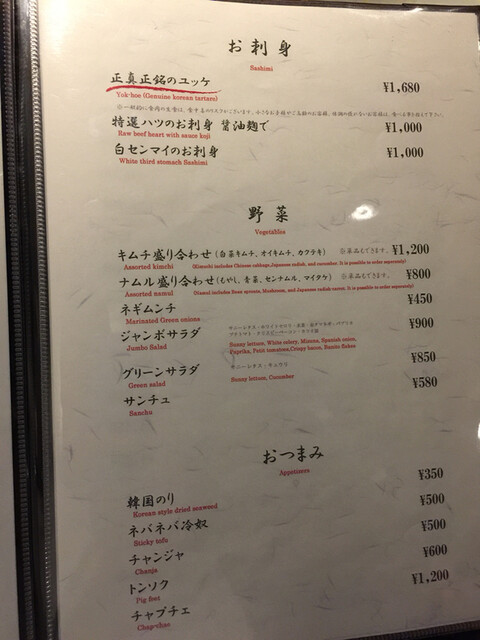 お刺身
Sashimi
正真正銘のユッケ ¥1,680
Yuk-hoe (Genuine korean tartare)
特選ハツのお刺身 醤油麹で ¥1,000
Raw beef heart with sauce koji
白センマイのお刺身 ¥1,000
White third stomach Sashimi
野菜
Vegetables
キムチ盛り合わせ(白菜キムチ、オイキムチ、カクテキ) 単品もできます。 ¥1,200
Assorted kimchi (Kimchi includes Chinese cabbage,Japanese radish, and cucumber. It is possible to order separately)
ナムル盛り合わせ(もやし、青菜、センナムル、マイタケ) 単品もできます。 ¥800
Assorted namul (Namul includes Bean sprouts, Mushroom, and Japanese radish carrot. It is possible to order separately)
ネギムンチ ¥450
Marinated Green onions
ジャンボサラダ ¥900
Jumbo Salad Sunny lettuce, White celery, Mizuna, Spanish onion,
Paprika, Fruit tomatoes,Crispy bacon, Bonito flakes
グリーンサラダ サニーレタス・キュウリ ¥850
Green salad Sunny lettuce, Cucumber
サンチュ ¥580
Sanchu
おつまみ
Appetizers
韓国のり ¥350
Korean style dried seaweed
ネバネバ冷奴 ¥500
Sticky tofu
チャンジャ ¥500
Chanja
トンソク ¥600
Pig feet
チャプチェ ¥1,200
Chap-chae